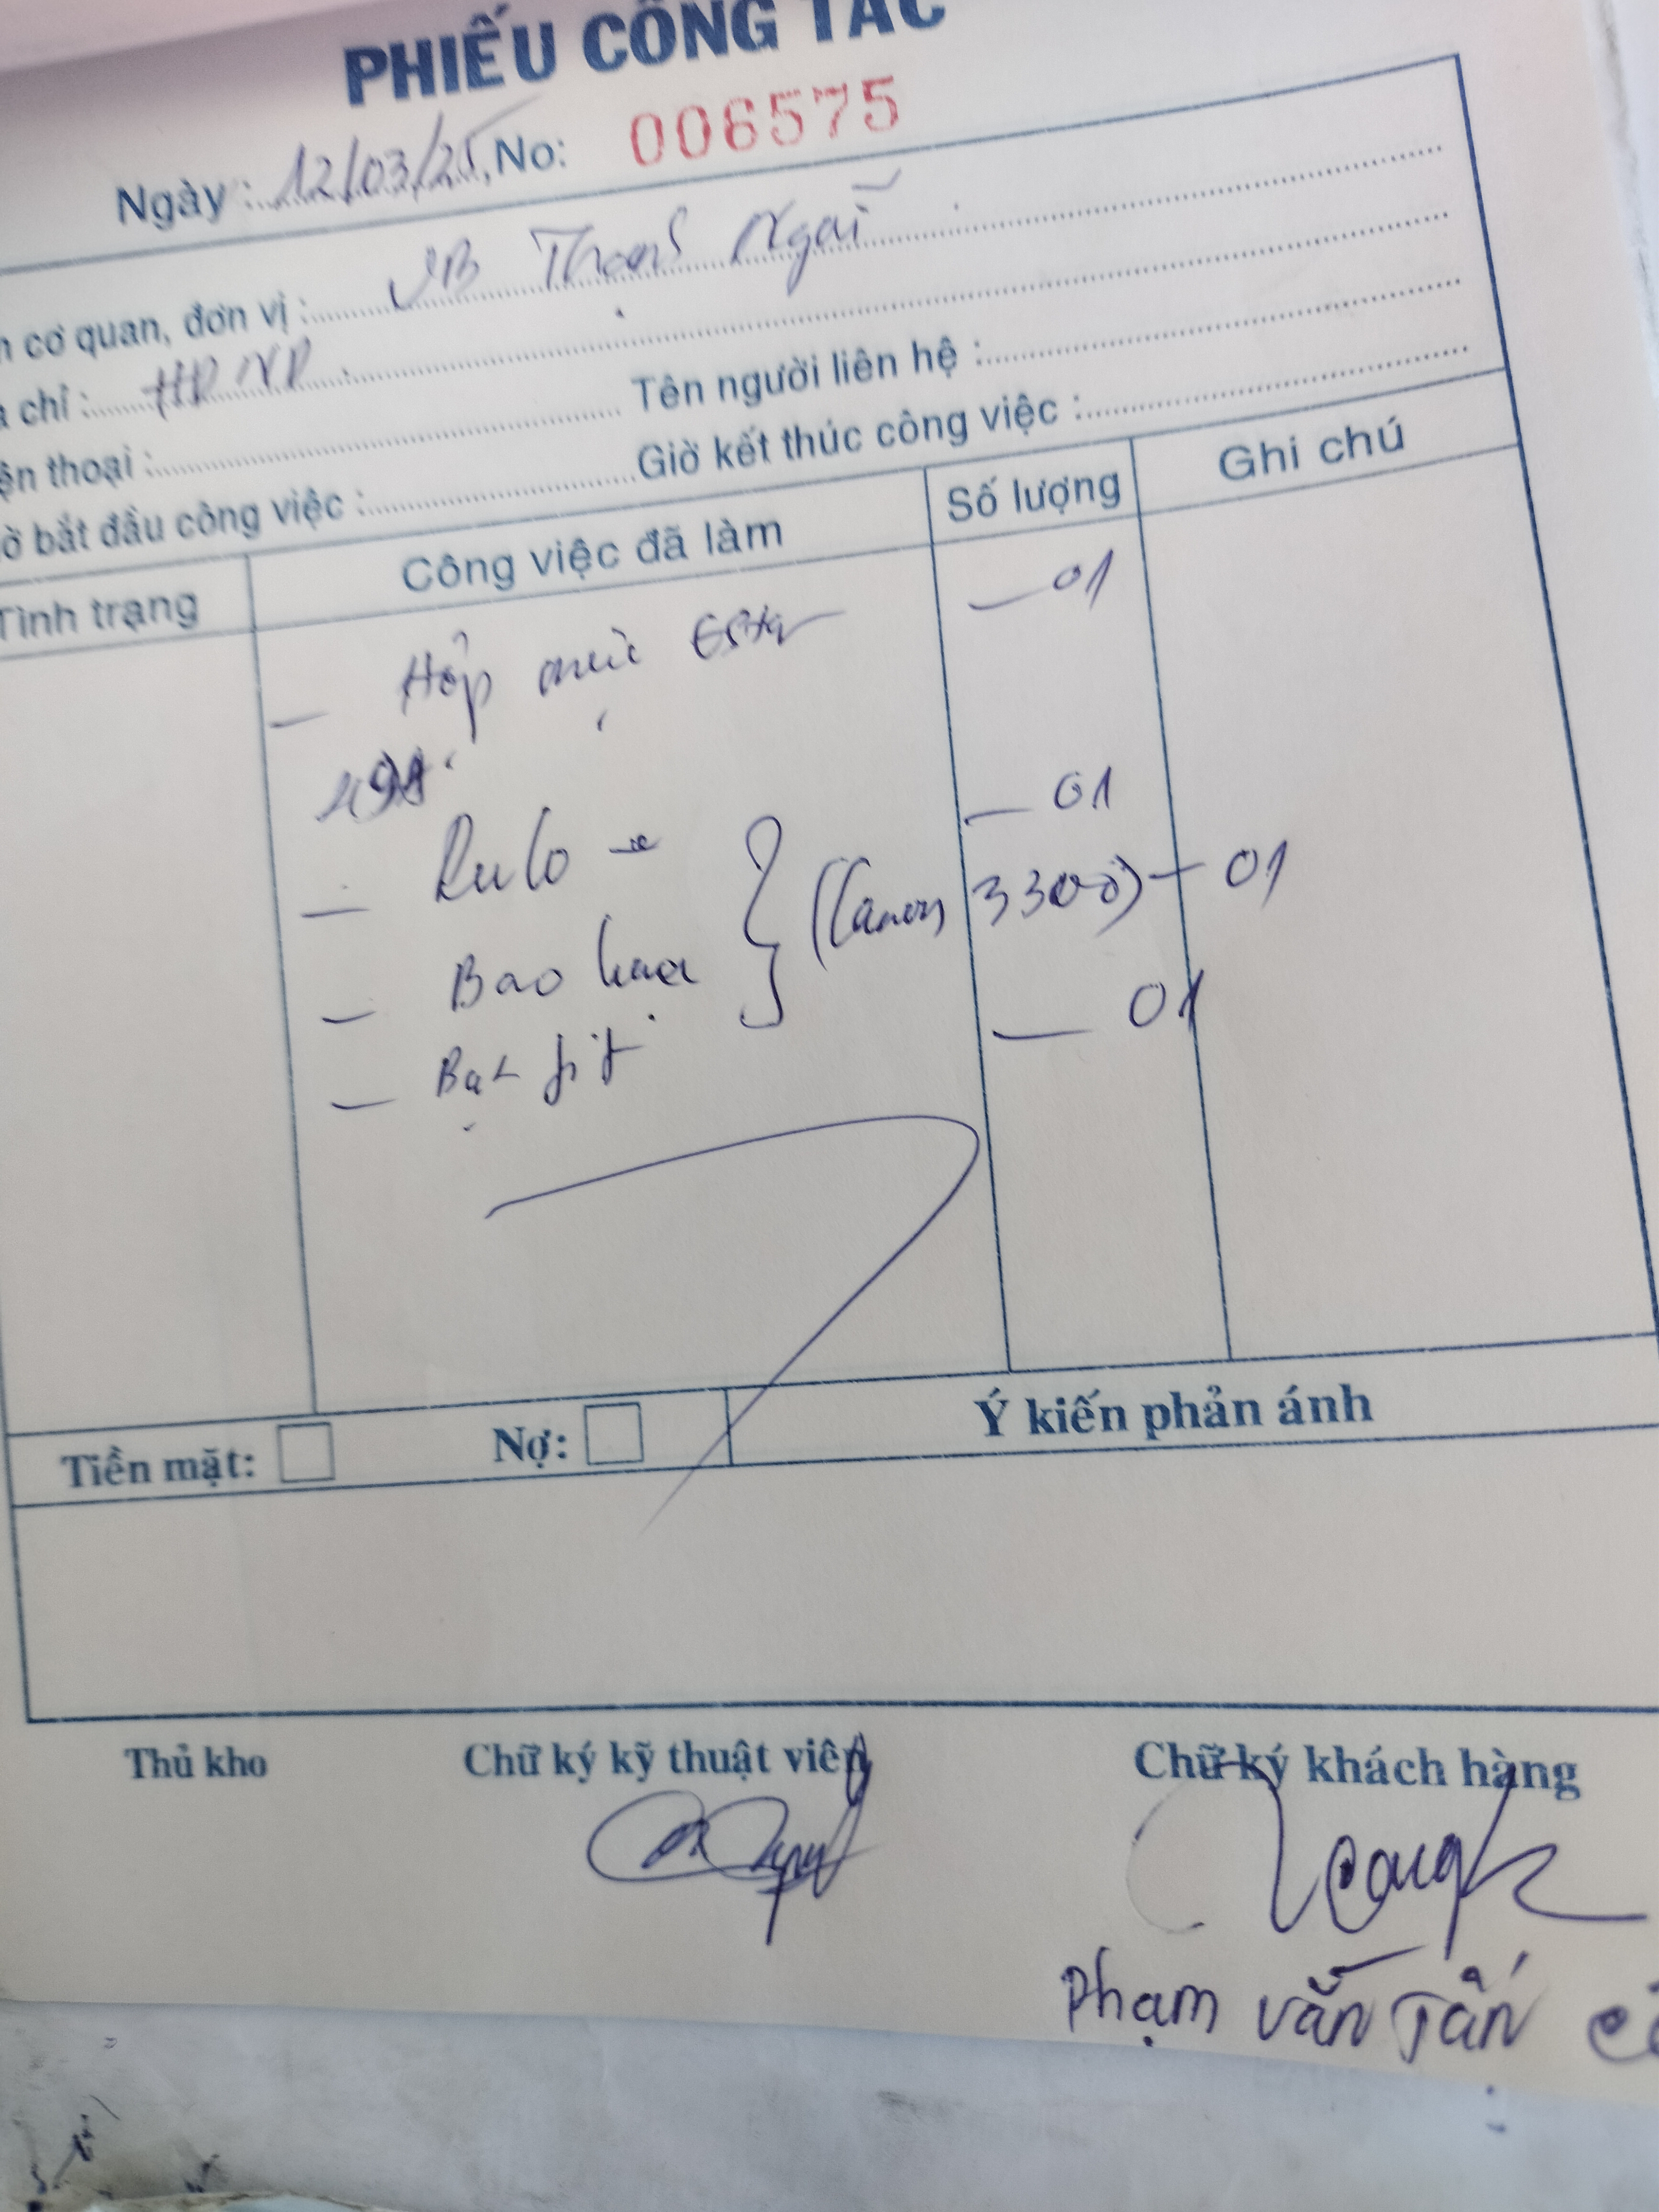 PHIẾU CÔNG TÁC
Ngày : 12/03/25, No: 006575
cơ quan, đơn vị : UB Thạnh Ngãi
chỉ :
thoại : Tên người liên hệ :
bắt đầu công việc : Giờ kết thúc công việc :
Tình trạng Công việc đã làm Số lượng Ghi chú
– Hộp mực – 01
49A
– Rulo – 01
– Bao lụa (Canon 3300) – 01
– Bạc – 01
Tiền mặt: Nợ: Ý kiến phản ánh
Thủ kho Chữ ký kỹ thuật viên Chữ ký khách hàng
Phạm Văn Tấn